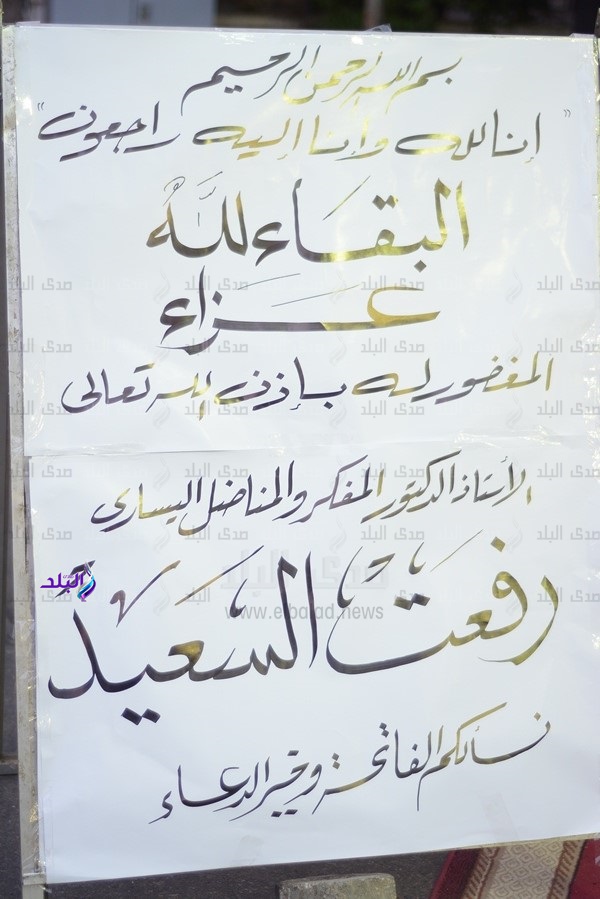 بسم الله الرحمن الرحيم
"إنا لله وإنا إليه راجعون"
البقاء لله
عزاء
المغفور له بإذن الله تعالى
الأستاذ الدكتور المفكر والمناضل اليسارى
رفعت السعيد
نسألكم الفاتحة وخير الدعاء
صدى البلد
www.elbalad.news